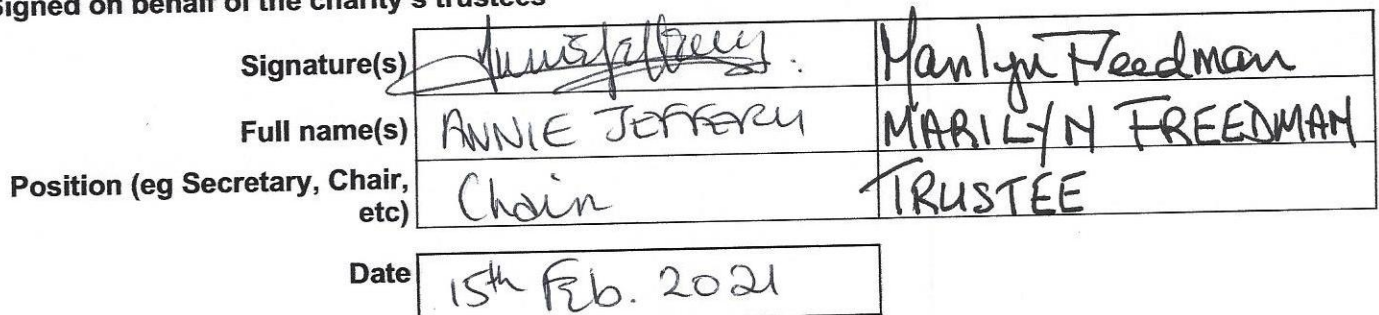 Signed on behalf of the charity's trustees
Signature(s) Annie Jeffery. Marilyn Freedman
Full name(s) ANNIE JEFFERY MARILYN FREEDMAN
Position (eg Secretary, Chair, etc) Chair TRUSTEE
Date 15th Feb. 2021